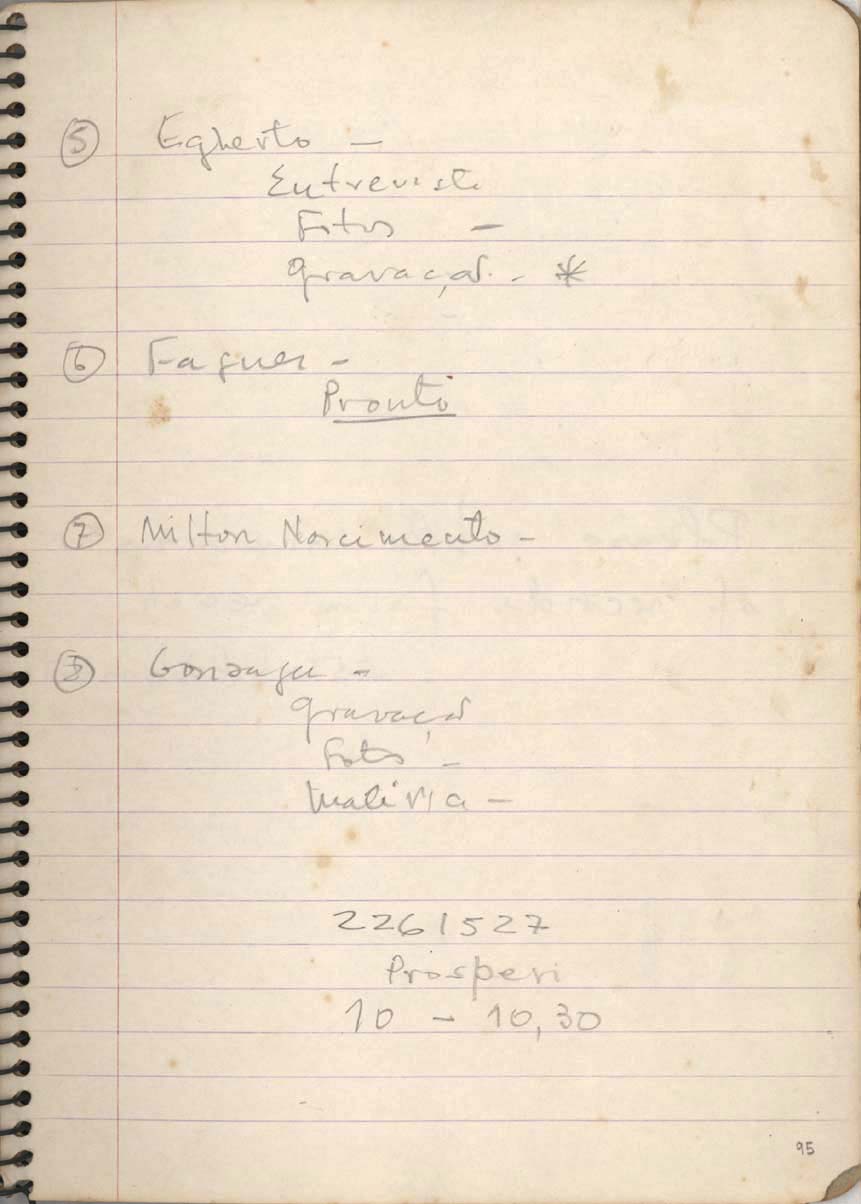 ⑤ Egberto -
Entrevista
Fotos -
gravação - *
⑥ Fagner -
Pronto
⑦ Milton Nascimento -
⑧ Gonzaga -
gravação
Fotos -
matéria -
2261527
Prosperi
10 - 10,30
95